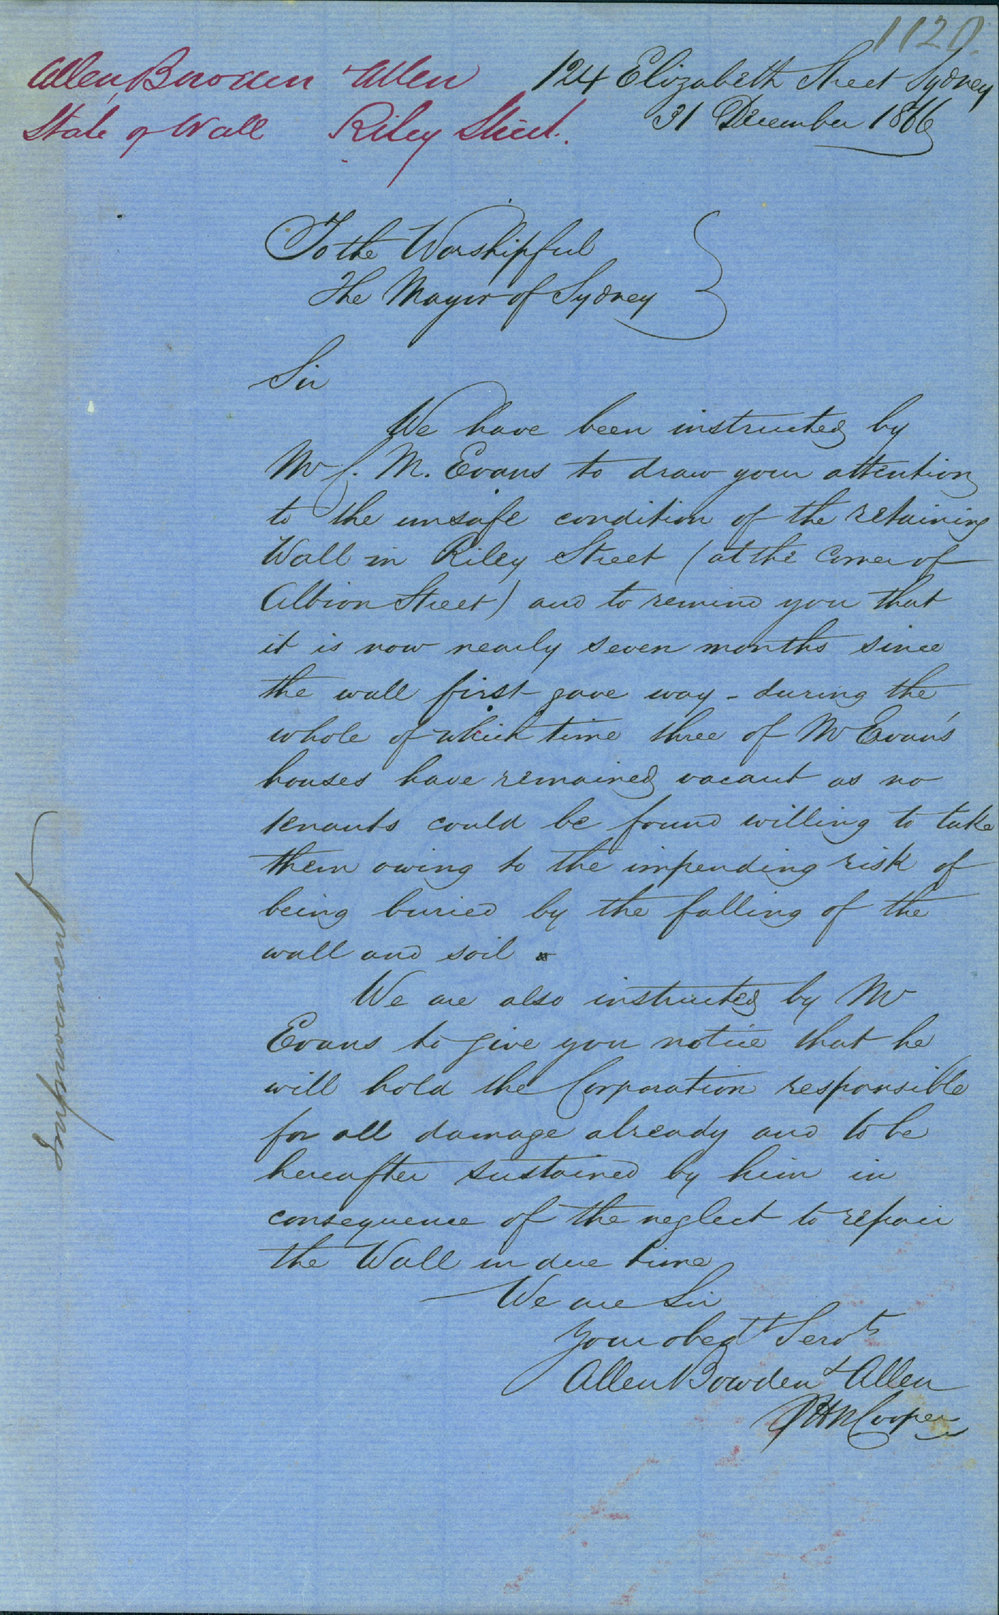 1120.
Allen, Bowden & Allen
State of Wall Riley Street.
124 Elizabeth Street Sydney
31 December 1866
To the Worshipful
The Mayor of Sydney
Sir
We have been instructed by
Mr J. M. Evans to draw your attention
to the unsafe condition of the retaining
Wall in Riley Street (at the Corner of
Albion Street) and to remind you that
it is now nearly seven months since
the wall first gave way - during the
whole of which time three of Mr Evans'
houses have remained vacant as no
tenants could be found willing to take
them owing to the impending risk of
being buried by the falling of the
wall and soil
We are also instructed by Mr
Evans to give you notice that he
will hold the Corporation responsible
for all damage already and to be
hereafter sustained by him in
consequence of the neglect to repair
the Wall in due time
We are Sir
Your obedt Servts
Allen Bowden & Allen
Cooper
Improvement